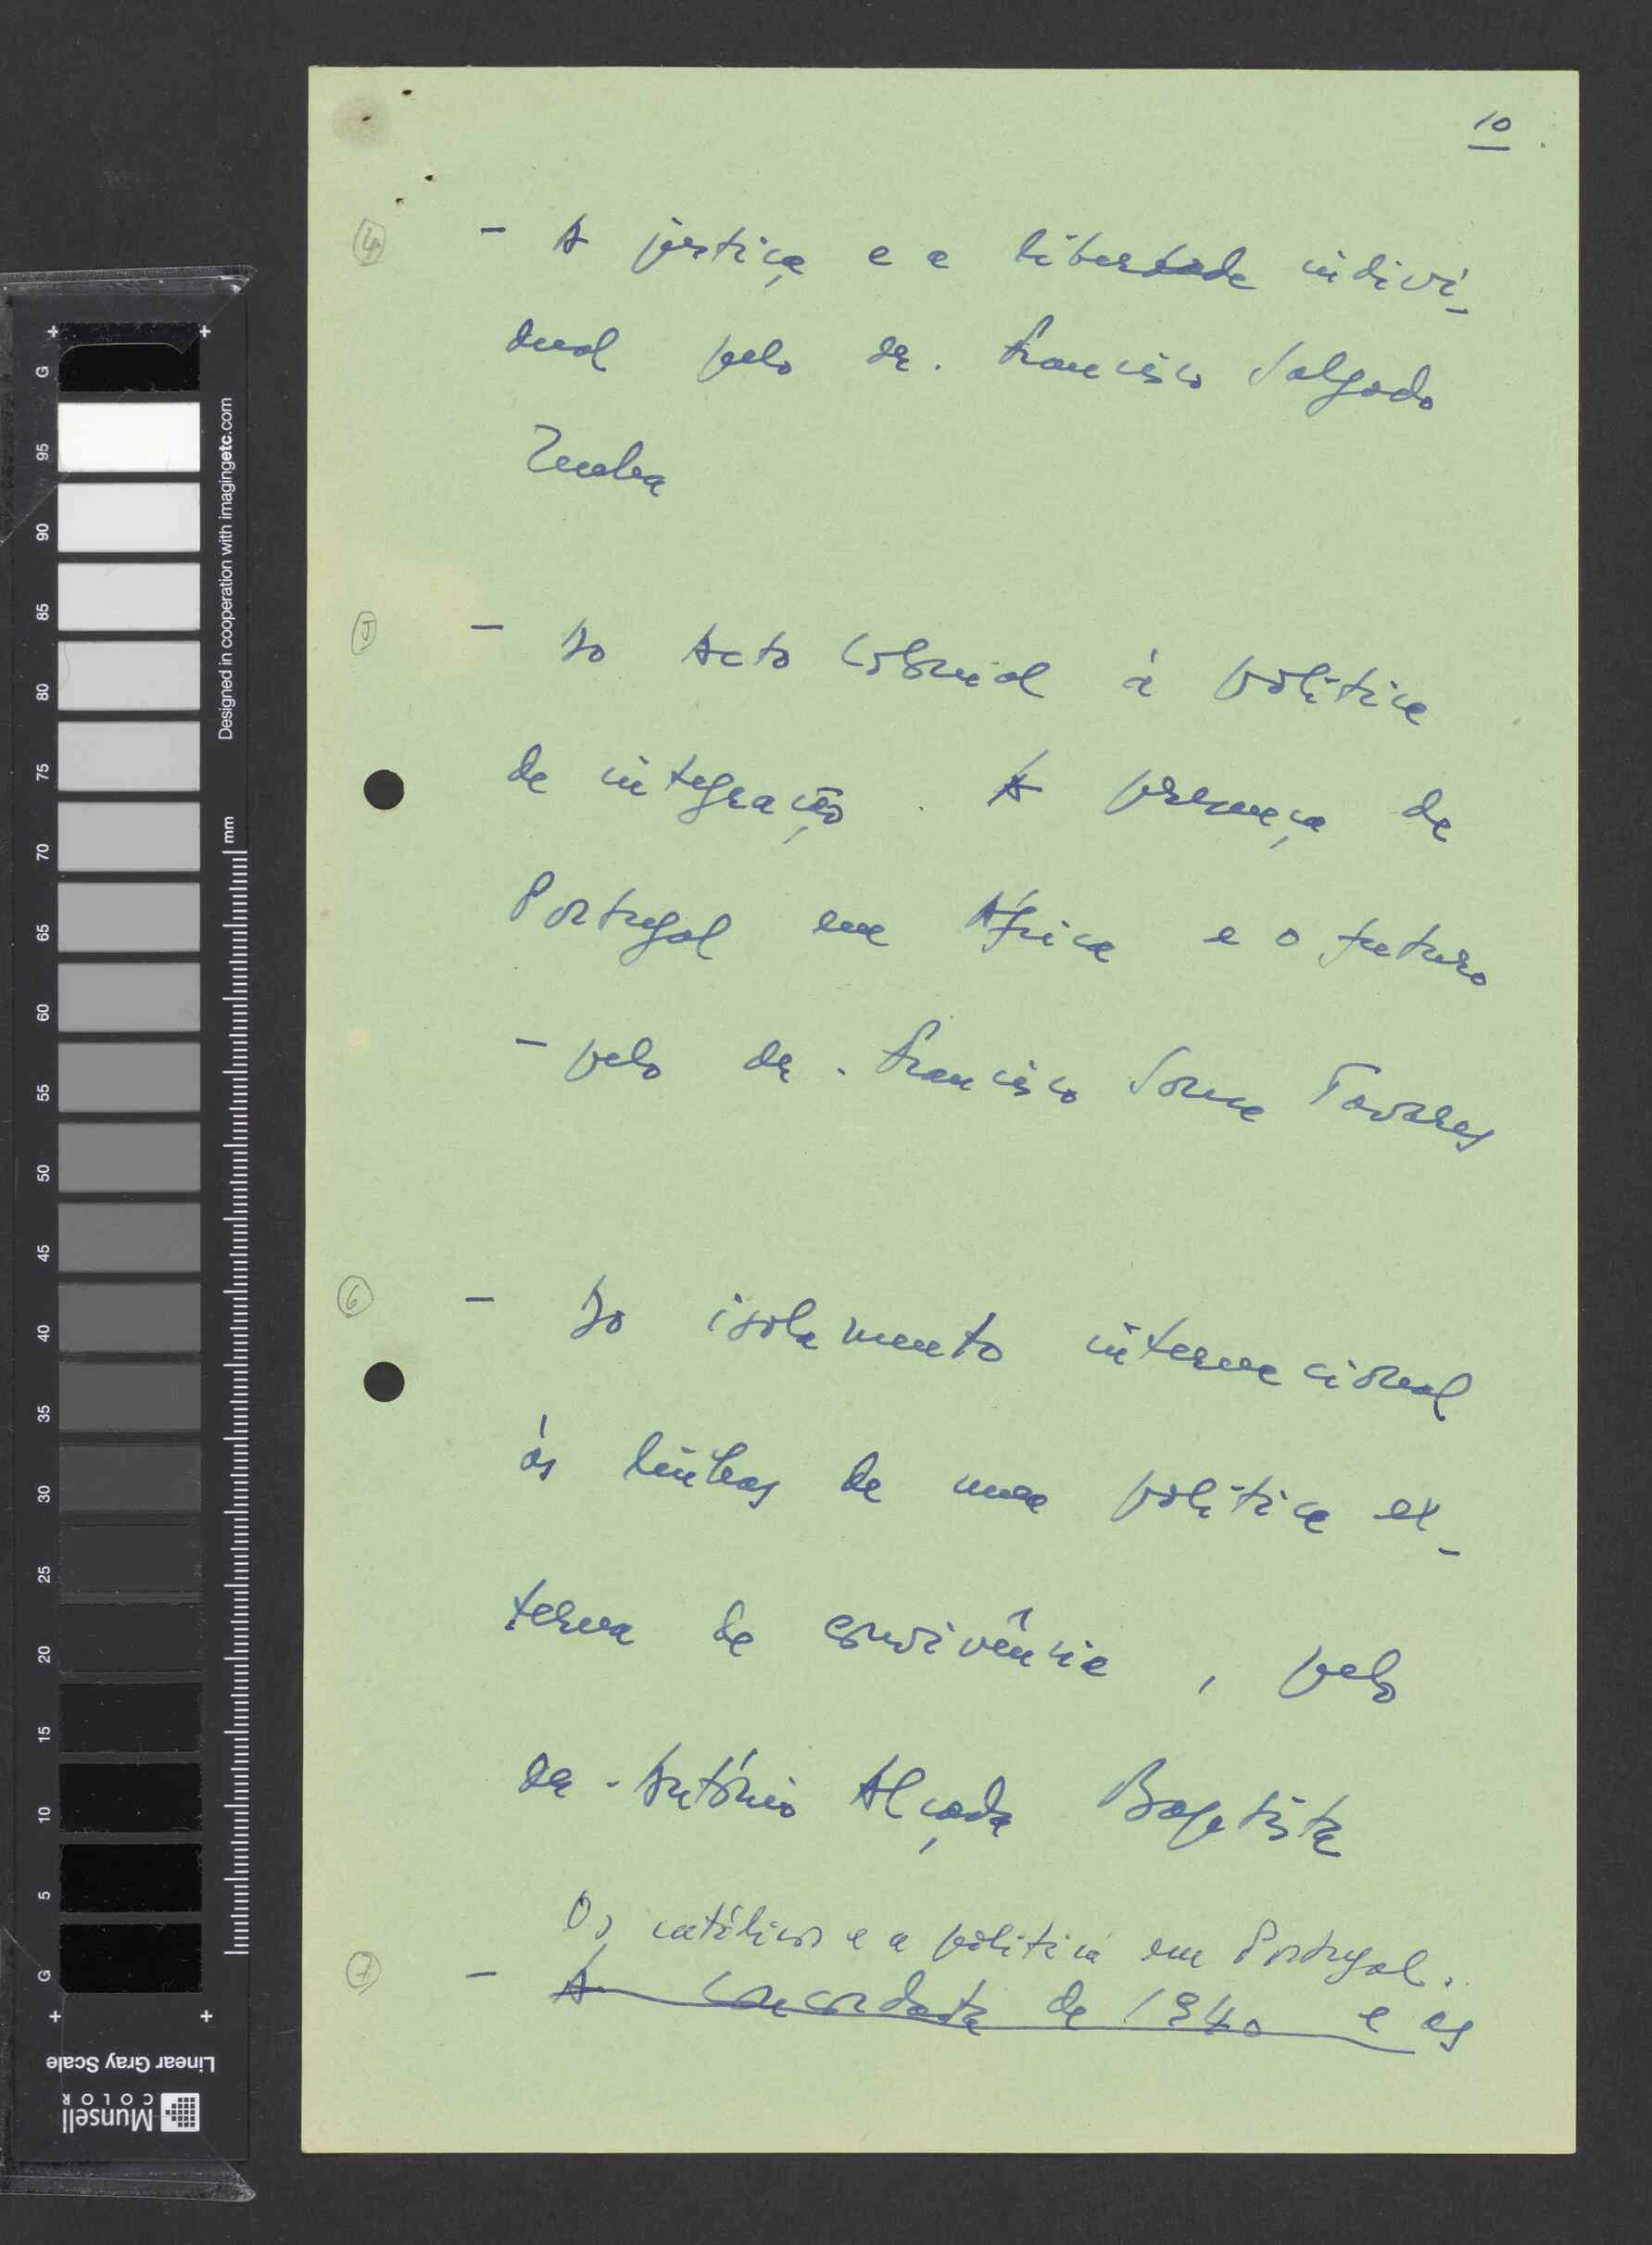 10
④ - A justiça e a liberdade indivi-
dual pelo dr. Francisco Salgado
Zenha
⑤ - Do Acto Colonial à política
de integração. A presença de
Portugal em África e o futuro
- pelo dr. Francisco Sousa Tavares
⑥ - Do isolamento internacional
às linhas de uma política ex-
terna de convivência, pelo
dr. António Alçada Baptista
Os católicos e a política em Portugal.
⑦ - A Concordata de 1940 e as
G 95 90 85 80 75 70 65 60 55 50 45 40 35 30 25 20 15 10 5 G
Designed in cooperation with imagingetc.com
mm
Linear Gray Scale
Munsell
COLOR